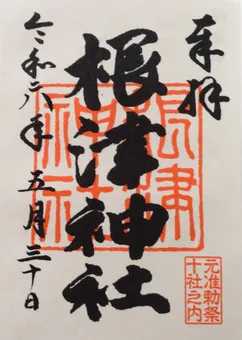 奉拝
根津神社
根津
神社
令和六年五月三十日
元准勅祭
十社之内